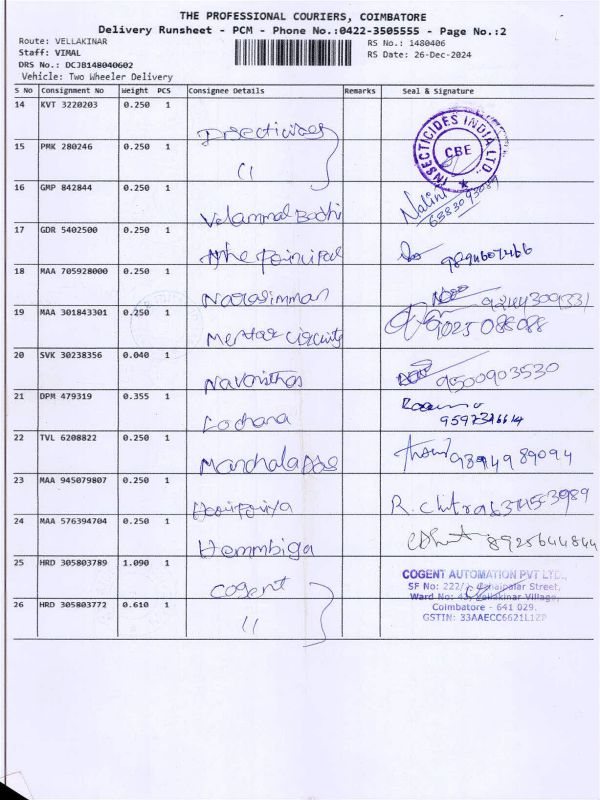 THE PROFESSIONAL COURIERS, COIMBATORE
Delivery Runsheet - PCM - Phone No.:0422-3505555 - Page No.:2
Route: VELLAKINAR
RS No.: 1480406
Staff: VIMAL
RS Date: 26-Dec-2024
DRS No.: DCJB148040602
Vehicle: Two Wheeler Delivery
S No Consignment No Weight PCS Consignee Details Remarks Seal & Signature
14 KVT 3220203 0.250 1 Insecticides
INSECTICIDES INDIA LTD.
CBE
15 PMK 280246 0.250 1 "
16 GMP 842844 0.250 1 Velammal Bodhi Nalini
6383093089
17 GDR 5402500 0.250 1 The Principal
18 MAA 705928000 0.250 1 Narasimman
19 MAA 301843301 0.250 1 Mentor Circuits 9025 088088
20 SVK 30238356 0.040 1 9500903530
21 DPM 479319 0.355 1 Lochana
22 TVL 6208822 0.250 1
23 MAA 945079807 0.250 1 Haripriya R. Chitra
24 MAA 576394704 0.250 1 Hemmbiga 8925644844
25 HRD 305803789 1.090 1 Cogent
COGENT AUTOMATION PVT LTD.,
26 HRD 305803772 0.610 1 "
SF No: 222/ Street,
Ward No: 43, Vellakinar Village,
Coimbatore - 641 029.
GSTIN: 33AAECC6621L1ZP